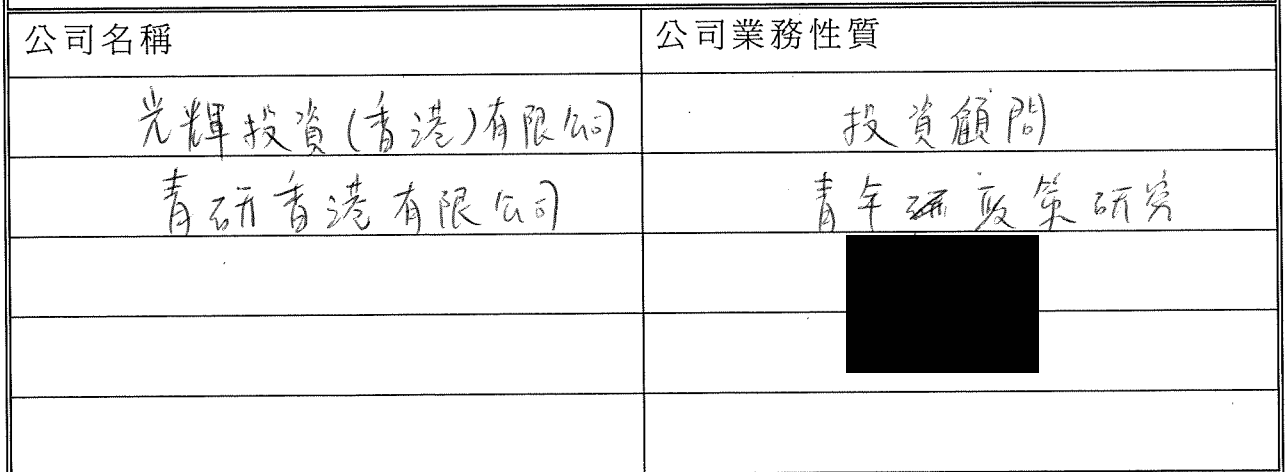 公司名稱
公司業務性質
光輝投資(香港)有限公司
投資顧問
青研香港有限公司
青年政策研究